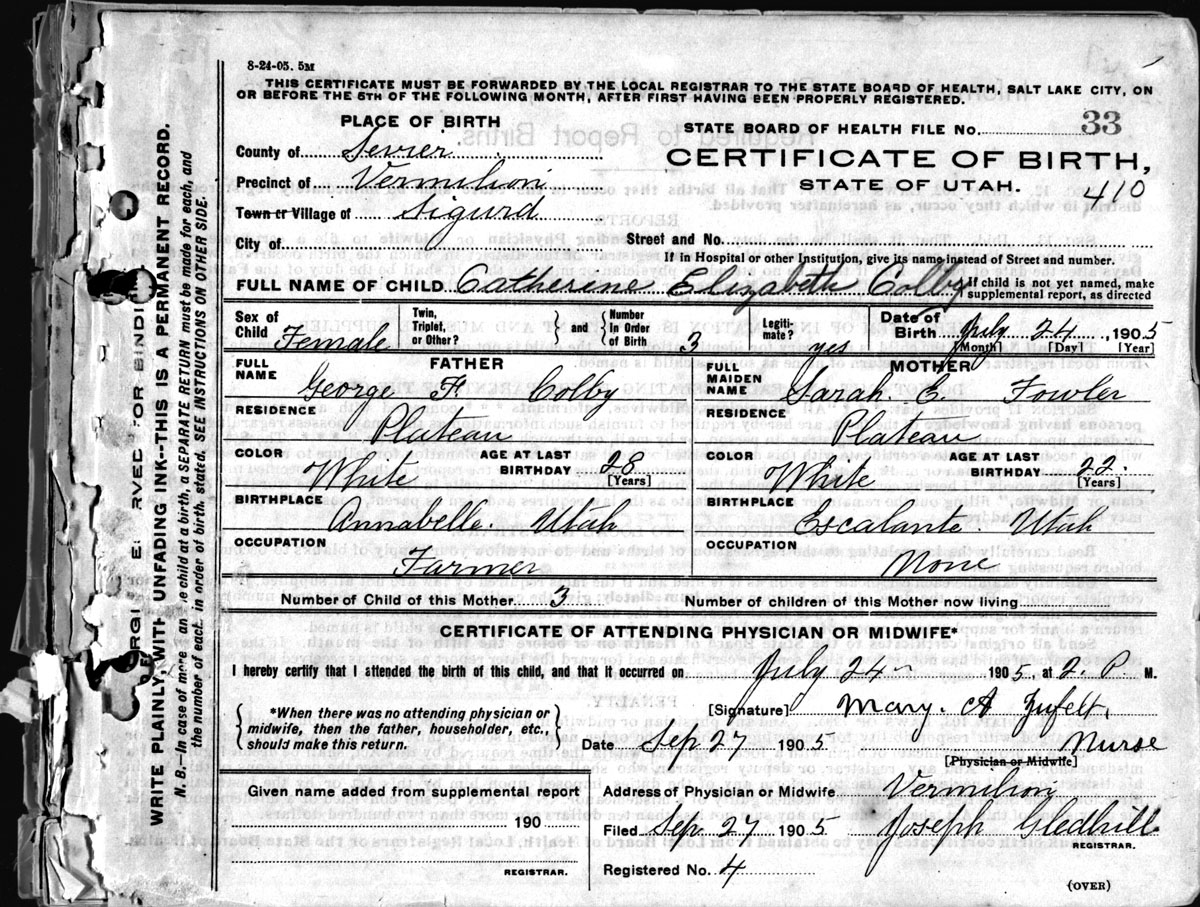 8-24-05. 5M
THIS CERTIFICATE MUST BE FORWARDED BY THE LOCAL REGISTRAR TO THE STATE BOARD OF HEALTH, SALT LAKE CITY, ON
OR BEFORE THE 5TH OF THE FOLLOWING MONTH, AFTER FIRST HAVING BEEN PROPERLY REGISTERED.
PLACE OF BIRTH
STATE BOARD OF HEALTH FILE No. 33
County of Sevier
CERTIFICATE OF BIRTH,
Precinct of Vermilion
STATE OF UTAH. 410
Town or Village of Sigurd
City of
Street and No.
If in Hospital or other Institution, give its name instead of Street and number.
FULL NAME OF CHILD Catherine Elizabeth Colby
If child is not yet named, make
supplemental report, as directed
Sex of Child Female
Twin, Triplet, or Other?
and
Number in Order of Birth 3
Legitimate? yes
Date of Birth July 24 1905
[Month] [Day] [Year]
FATHER
FULL NAME George F. Colby
RESIDENCE Plateau
COLOR White
AGE AT LAST BIRTHDAY 28 [Years]
BIRTHPLACE Annabelle. Utah
OCCUPATION Farmer
MOTHER
FULL MAIDEN NAME Sarah. E. Fowler
RESIDENCE Plateau
COLOR White
AGE AT LAST BIRTHDAY 22. [Years]
BIRTHPLACE Escalante. Utah
OCCUPATION None
Number of Child of this Mother 3
Number of children of this Mother now living
CERTIFICATE OF ATTENDING PHYSICIAN OR MIDWIFE*
I hereby certify that I attended the birth of this child, and that it occurred on July 24 1905, at 2. P M.
*When there was no attending physician or
midwife, then the father, householder, etc.,
should make this return.
[Signature] Mary. A Zufelt,
Date Sep 27 1905 Nurse
[Physician or Midwife]
Given name added from supplemental report
190
REGISTRAR.
Address of Physician or Midwife Vermilion
Filed Sep. 27 1905 Joseph Gledhill
REGISTRAR.
Registered No. 4
(OVER)
WRITE PLAINLY, WITH UNFADING INK--THIS IS A PERMANENT RECORD.
N. B.—In case of more than one child at a birth, a SEPARATE RETURN must be made for each, and
the number of each, in order of birth, stated. SEE INSTRUCTIONS ON OTHER SIDE.